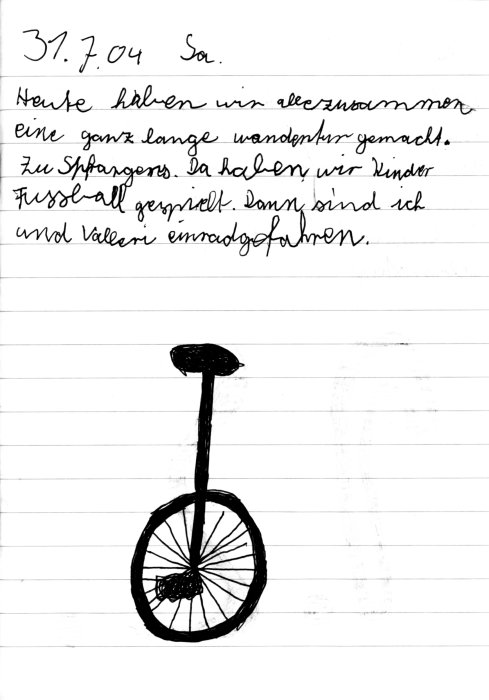 31.7.04 Sa.
Heute haben wir allezusammen
eine ganz lange wanderturgemacht.
Zu Spftargens. Da haben wir Kinder
Fussball gespielt. Dann sind ich
und Valleri einradgefahren.